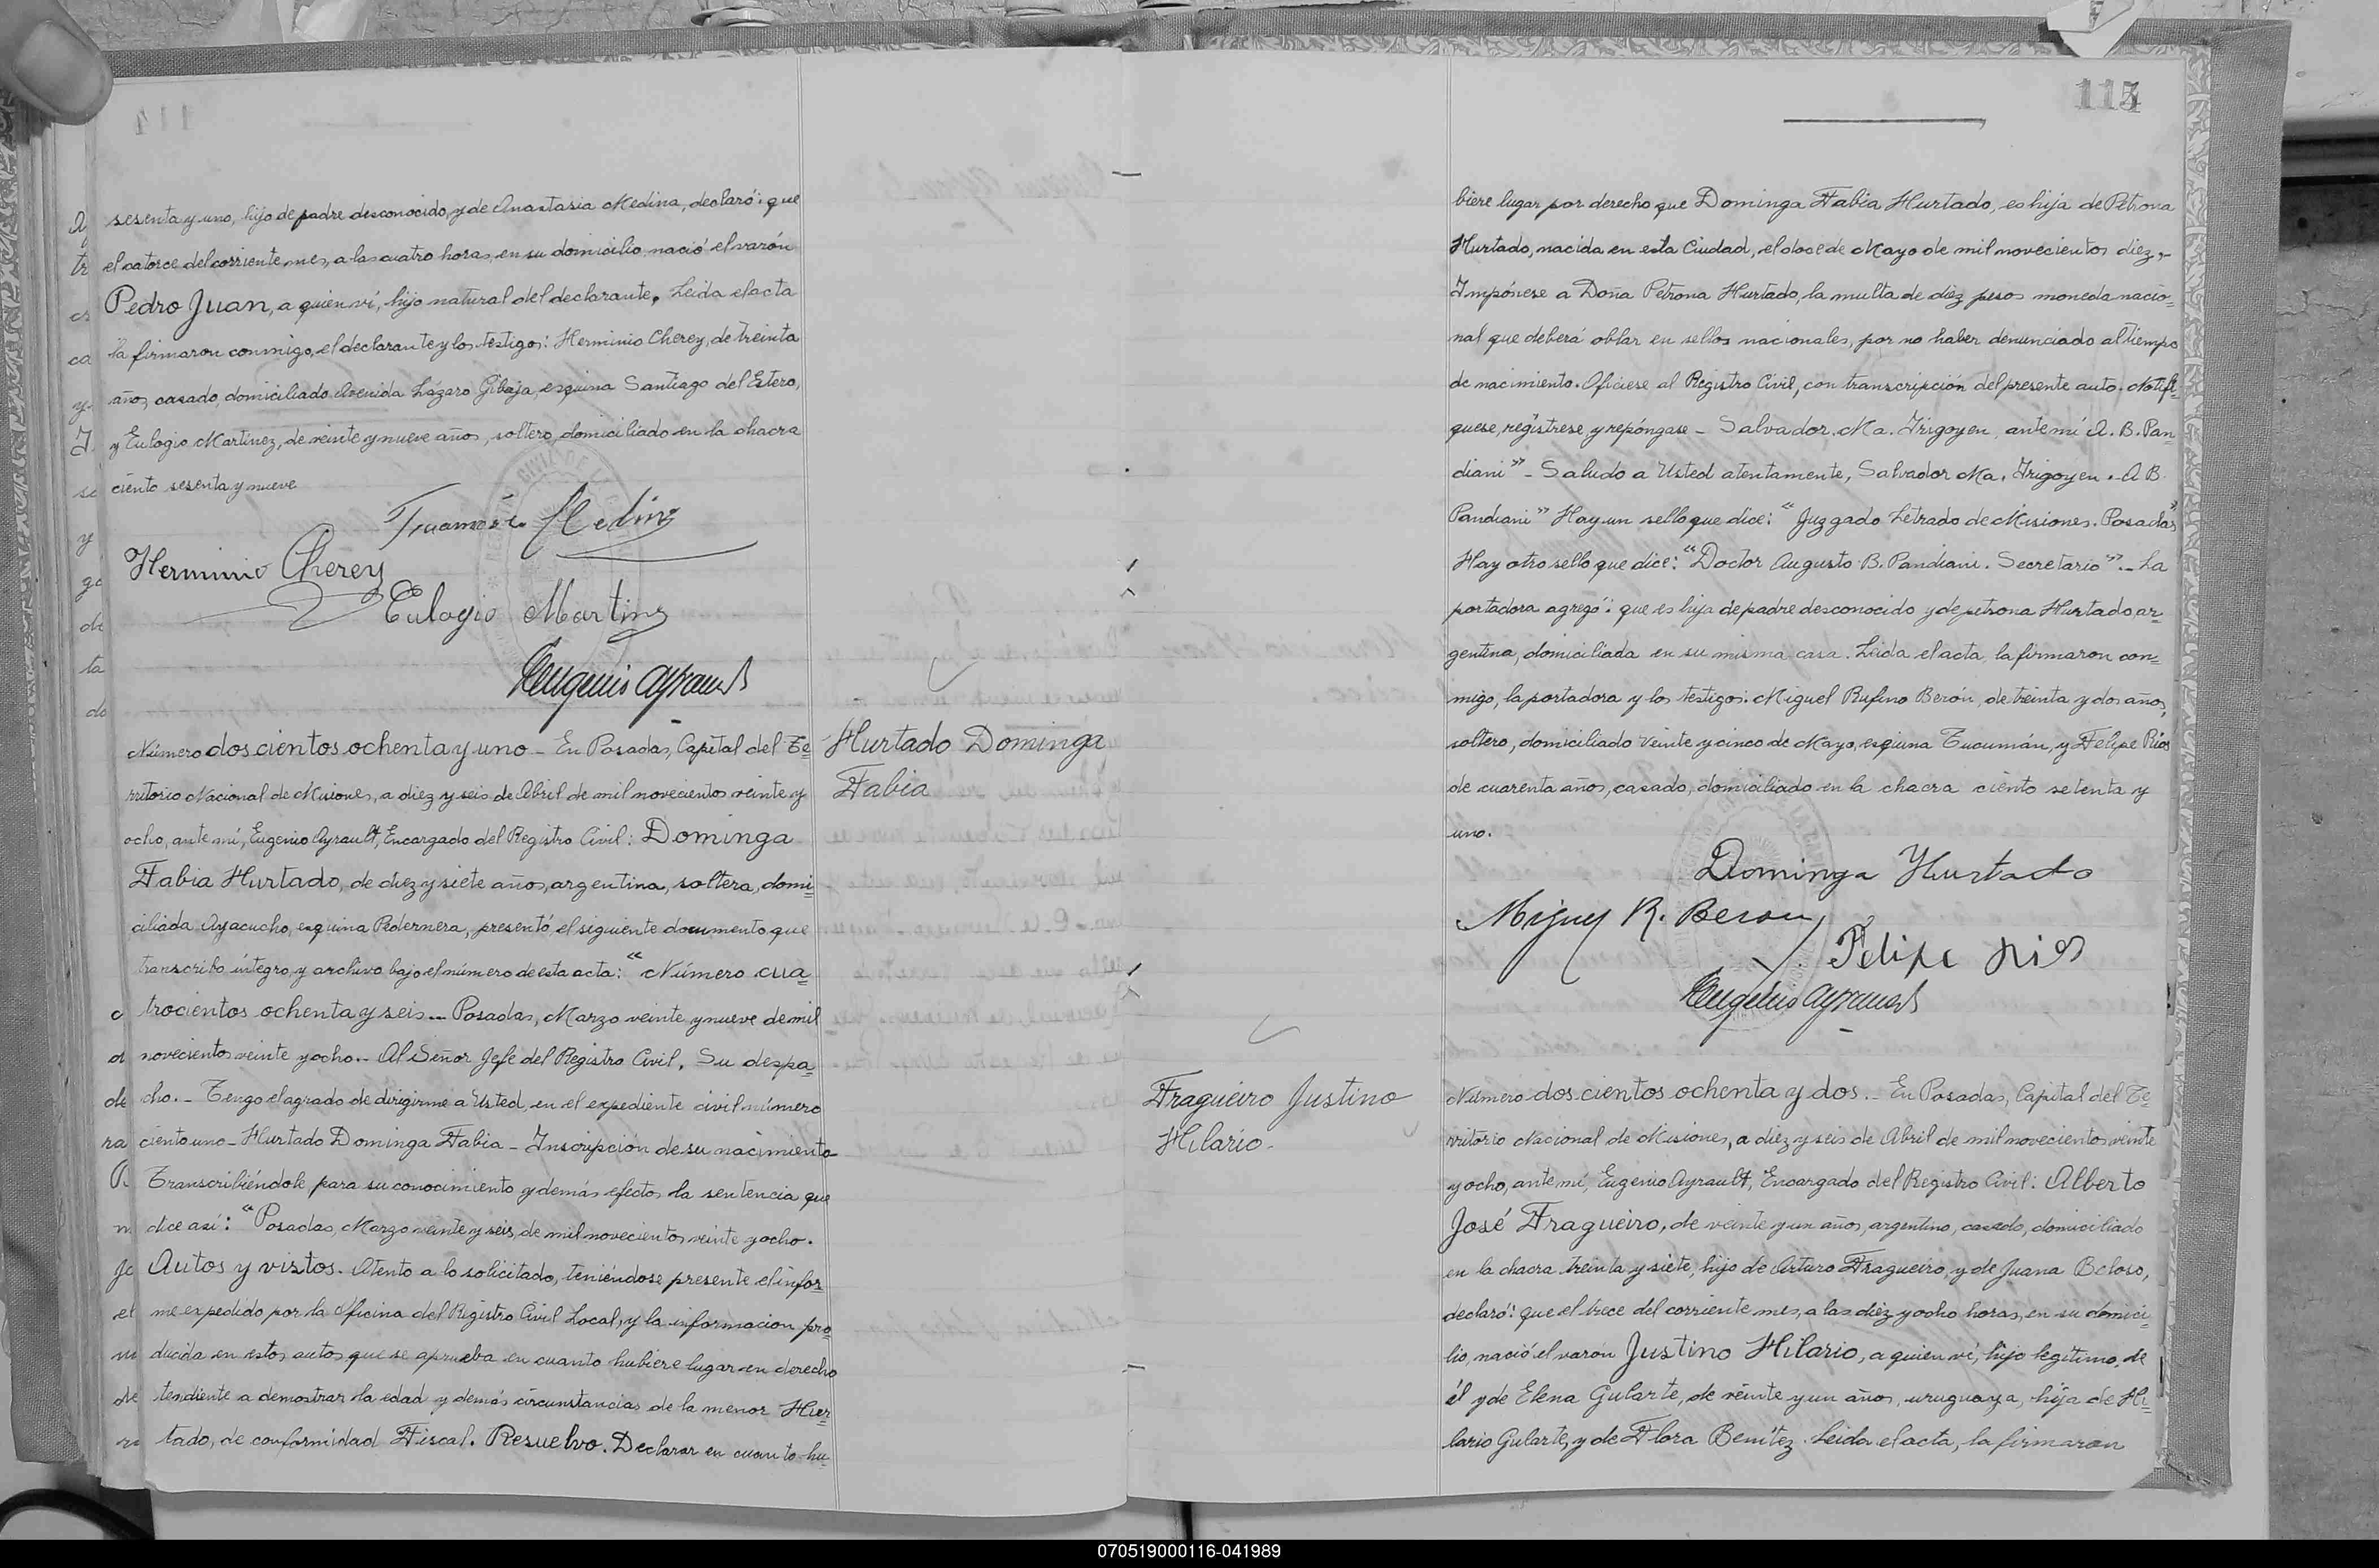 sesenta y uno, hijo de padre desconocido, y de Anastasia Medina, declaró: que
el catorce del corriente mes, a las cuatro horas, en su domicilio nació el varón
Pedro Juan, a quien ví, hijo natural del declarante. Leida el acta
la firmaron conmigo, el declarante y los testigos: Herminio Cherey, de treinta
años, casado, domiciliado Avenida Lázaro Gibaja, esquina Santiago del Estero,
y Eulogio Martinez, de veinte y nueve años, soltero, domiciliado en la chacra
ciento sesenta y nueve
Medina
Herminio Cherey
Eulogio Martinez
Eugenio Ayrault
Hurtado Dominga
Fabia
Número dos cientos ochenta y uno - En Posadas, Capital del Te=
rritorio Nacional de Misiones, a diez y seis de Abril de mil novecientos veinte y
ocho, ante mí, Eugenio Ayrault, Encargado del Registro Civil: Dominga
Fabia Hurtado, de diez y siete años, argentina, soltera, domi=
ciliada Ayacucho, esquina Pedernera, presentó el siguiente documento que
transcribo íntegro, y archivo bajo el número de esta acta: "Número cua=
trocientos ochenta y seis.- Posadas, Marzo veinte y nueve de mil
novecientos veinte y ocho.- Al Señor Jefe del Registro Civil. Su despa=
cho.- Tengo el agrado de dirigirme a Usted, en el expediente civil número
ciento uno - Hurtado Dominga Fabia - Inscripción de su nacimiento
Transcribiéndole para su conocimiento y demás efectos la sentencia que
dice así: "Posadas, Marzo veinte y seis, de mil novecientos veinte y ocho.
Autos y vistos. Atento a lo solicitado, teniéndose presente el infor=
me expedido por la Oficina del Registro Civil Local, y la informacion pro=
ducida en estos autos que se aprueba en cuanto hubiere lugar en derecho
tendiente a demostrar la edad y demás circunstancias de la menor Hur=
tado, de conformidad Fiscal. Resuelvo. Declarar en cuanto hu=
114
biere lugar por derecho que Dominga Fabia Hurtado, es hija de Petrona
Hurtado, nacida en esta Ciudad, el doce de Mayo de mil novecientos diez.-
Impónese a Doña Petrona Hurtado, la multa de diez pesos moneda nacio=
nal que deberá oblar en sellos nacionales, por no haber denunciado al tiempo
de nacimiento. Ofíciese al Registro Civil, con transcripción del presente auto. Notifí=
quese, regístrese y repóngase - Salvador Ma. Irigoyen, ante mí A. B. Pan=
diani" - Saludo a Usted atentamente, Salvador Ma. Irigoyen. - A B
Pandiani" Hay un sello que dice: "Juzgado Letrado de Misiones. Posadas"
Hay otro sello que dice: "Doctor Augusto B. Pandiani. Secretario".- La
portadora agregó: que es hija de padre desconocido y de petrona Hurtado, ar=
gentina, domiciliada en su misma casa. Leida el acta, la firmaron con=
migo, la portadora y los testigos: Miguel Rufino Berón, de treinta y dos años,
soltero, domiciliado Veinte y cinco de Mayo, esquina Tucumán, y Felipe Rios
de cuarenta años, casado, domiciliado en la chacra ciento setenta y
uno.
Dominga Hurtado
Miguel R. Beron
Felipe Rios
Eugenio Ayrault
Fragueiro Justino
Hilario-
Número dos cientos ochenta y dos.- En Posadas, Capital del Te=
rritorio Nacional de Misiones, a diez y seis de Abril de mil novecientos veinte
y ocho, ante mí, Eugenio Ayrault, Encargado del Registro Civil: Alberto
José Fragueiro, de veinte y un años, argentino, casado, domiciliado
en la chacra treinta y siete, hijo de Arturo Fragueiro, y de Juana Beloso,
declaró: que el trece del corriente mes, a las diez y ocho horas, en su domici=
lio, nació el varón Justino Hilario, a quien ví, hijo legítimo, de
él y de Elena Gularte, de veinte y un años, uruguaya, hija de Hi=
lario Gularte, y de Flora Benítez. Leida el acta, la firmaron
070519000116-041989